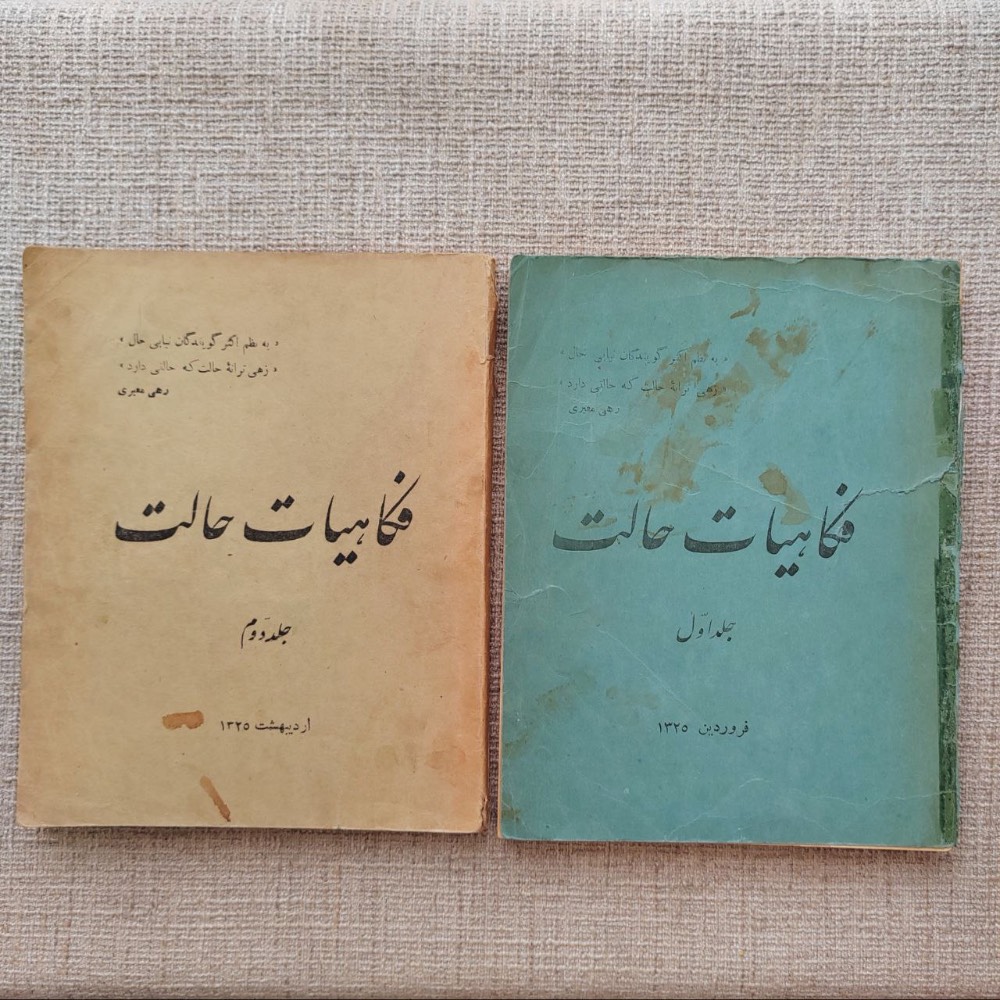 « به نظم اکثر گویندگان نیابی حال »
« زهی ترانهٔ حالت که حالتی دارد »
رهی معیری
فکاهیات حالت
جلد اوّل
فروردین ۱۳۲۵
« به نظم اکثر گویندگان نیابی حال »
« زهی ترانهٔ حالت که حالتی دارد »
رهی معیری
فکاهیات حالت
جلد دوم
اردیبهشت ۱۳۲۵